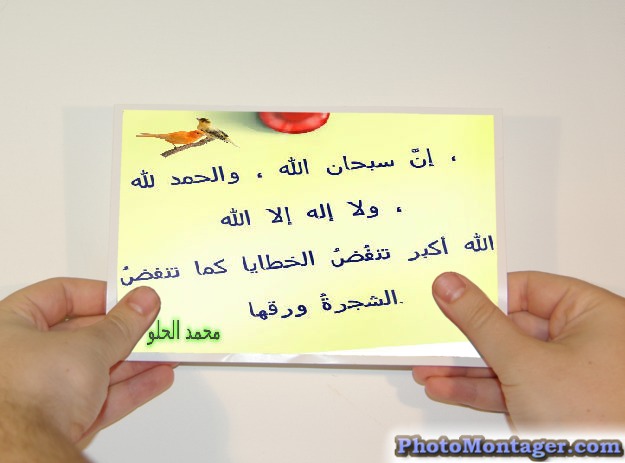 ، إنَّ سبحان الله ، والحمد لله
، ولا إله إلا الله
الله أكبر تنفُضُ الخطايا كما تنفضُ
.الشجرةُ ورقها
محمد الحلو
PhotoMontager.com